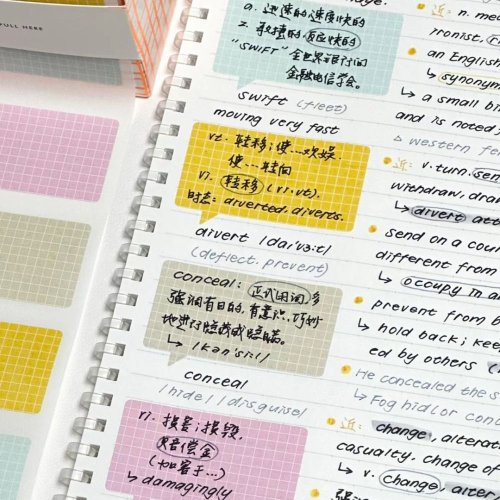 PULL HERE
a. 迅速的;速度快的
2. 敏捷的;反应快的
"SWIFT" 全世界银行间
金融电信学会。
swift (fleet)
moving very fast
vt. 转移;使...欢娱.
使...转向
vi. 转移 (vi.vt).
时态: diverted. diverts.
divert /daɪ'vɜ:t/
(deflect. prevent)
conceal: 正式用词,多
强调有目的,有意识,巧妙
地进行隐藏或隐瞒。
↳ /kən'si:l/
conceal
/hide/ /disguise/
n. 损害;损毁,
赔偿金
(如客于...)
↳ damagingly
近: n. me
ironist, r
an English
↳ synonym
↳ a small b
and is noted
△ western fe
近: v. turn, sen
withdraw, draw
↳ divert att
send on a cour
different from
↳ occupy m
prevent from b
↳ hold back; keep
ed by others (
He concealed the s
↳ Fog hid (or con
近: change, altera
casualty, change of
↳ v. change, alter
强调